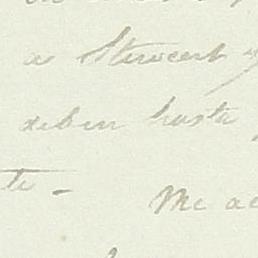 a Stewart y
deben hasta
te -
Me ac